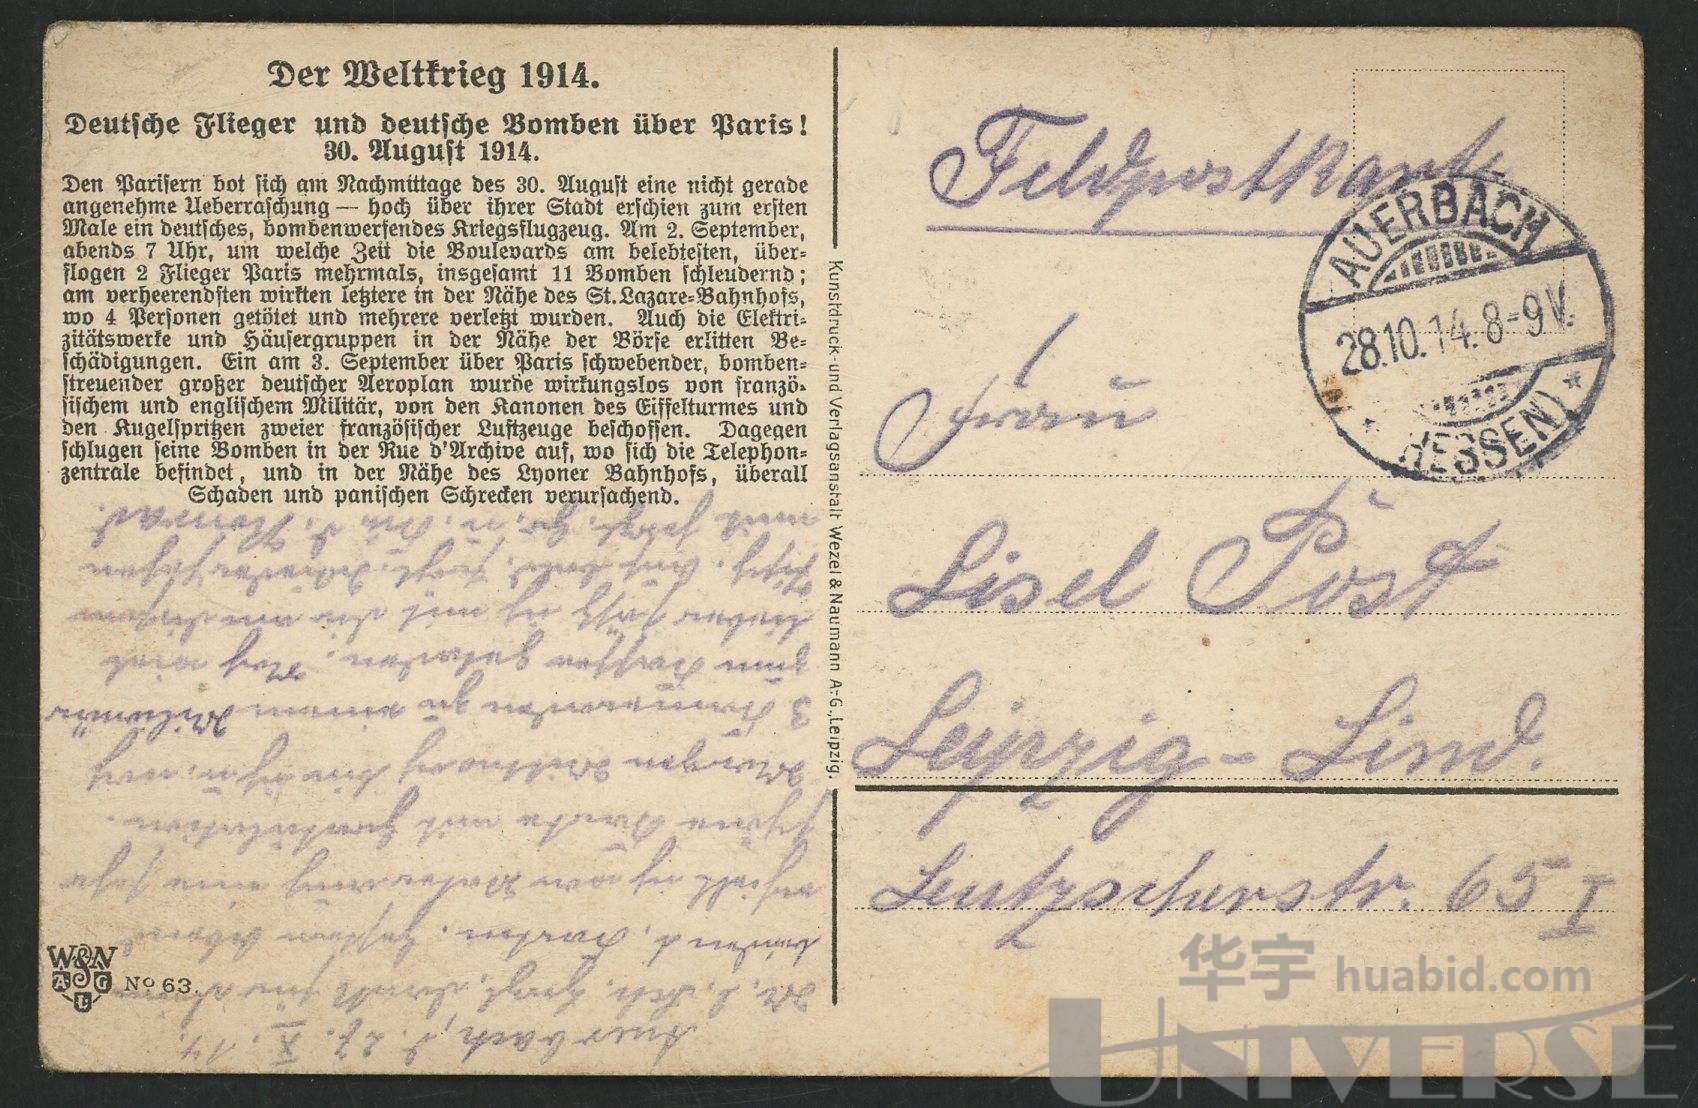 Der Weltkrieg 1914.
Deutsche Flieger und deutsche Bomben über Paris!
30. August 1914.
Den Parisern bot sich am Nachmittage des 30. August eine nicht gerade
angenehme Ueberraschung — hoch über ihrer Stadt erschien zum ersten
Male ein deutsches, bombenwerfendes Kriegsflugzeug. Am 2. September,
abends 7 Uhr, um welche Zeit die Boulevards am belebtesten, über-
flogen 2 Flieger Paris mehrmals, insgesamt 11 Bomben schleudernd;
am verheerendsten wirkten letztere in der Nähe des St. Lazare-Bahnhofs,
wo 4 Personen getötet und mehrere verletzt wurden. Auch die Elektri-
zitätswerke und Häusergruppen in der Nähe der Börse erlitten Be-
schädigungen. Ein am 3. September über Paris schwebender, bomben-
streuender großer deutscher Aeroplan wurde wirkungslos von franzö-
sischem und englischem Militär, von den Kanonen des Eiffelturmes und
den Kugelspritzen zweier französischer Luftzeuge beschossen. Dagegen
schlugen seine Bomben in der Rue d'Archive auf, wo sich die Telephon-
zentrale befindet, und in der Nähe des Lyoner Bahnhofs, überall
Schaden und panischen Schrecken verursachend.
Auerbach, d. 27. X. 14.
erhielt ich von
schöne Karte mit Gratulation.
Morgen Mittwoch bin ich u. noch
3 Kameraden zu einem
zum Kaffee geladen.
W&N
A G
L
No 63.
Kunstdruck- und Verlagsanstalt Wezel & Naumann A-G., Leipzig.
Feldpostkarte
AUERBACH
28.10.14. 8-9 V.
* (HESSEN) *
Frau
Lisel Post
Leipzig - Lind.
Leutzscherstr. 65 I
华宇 huabid.com
UNIVERSE